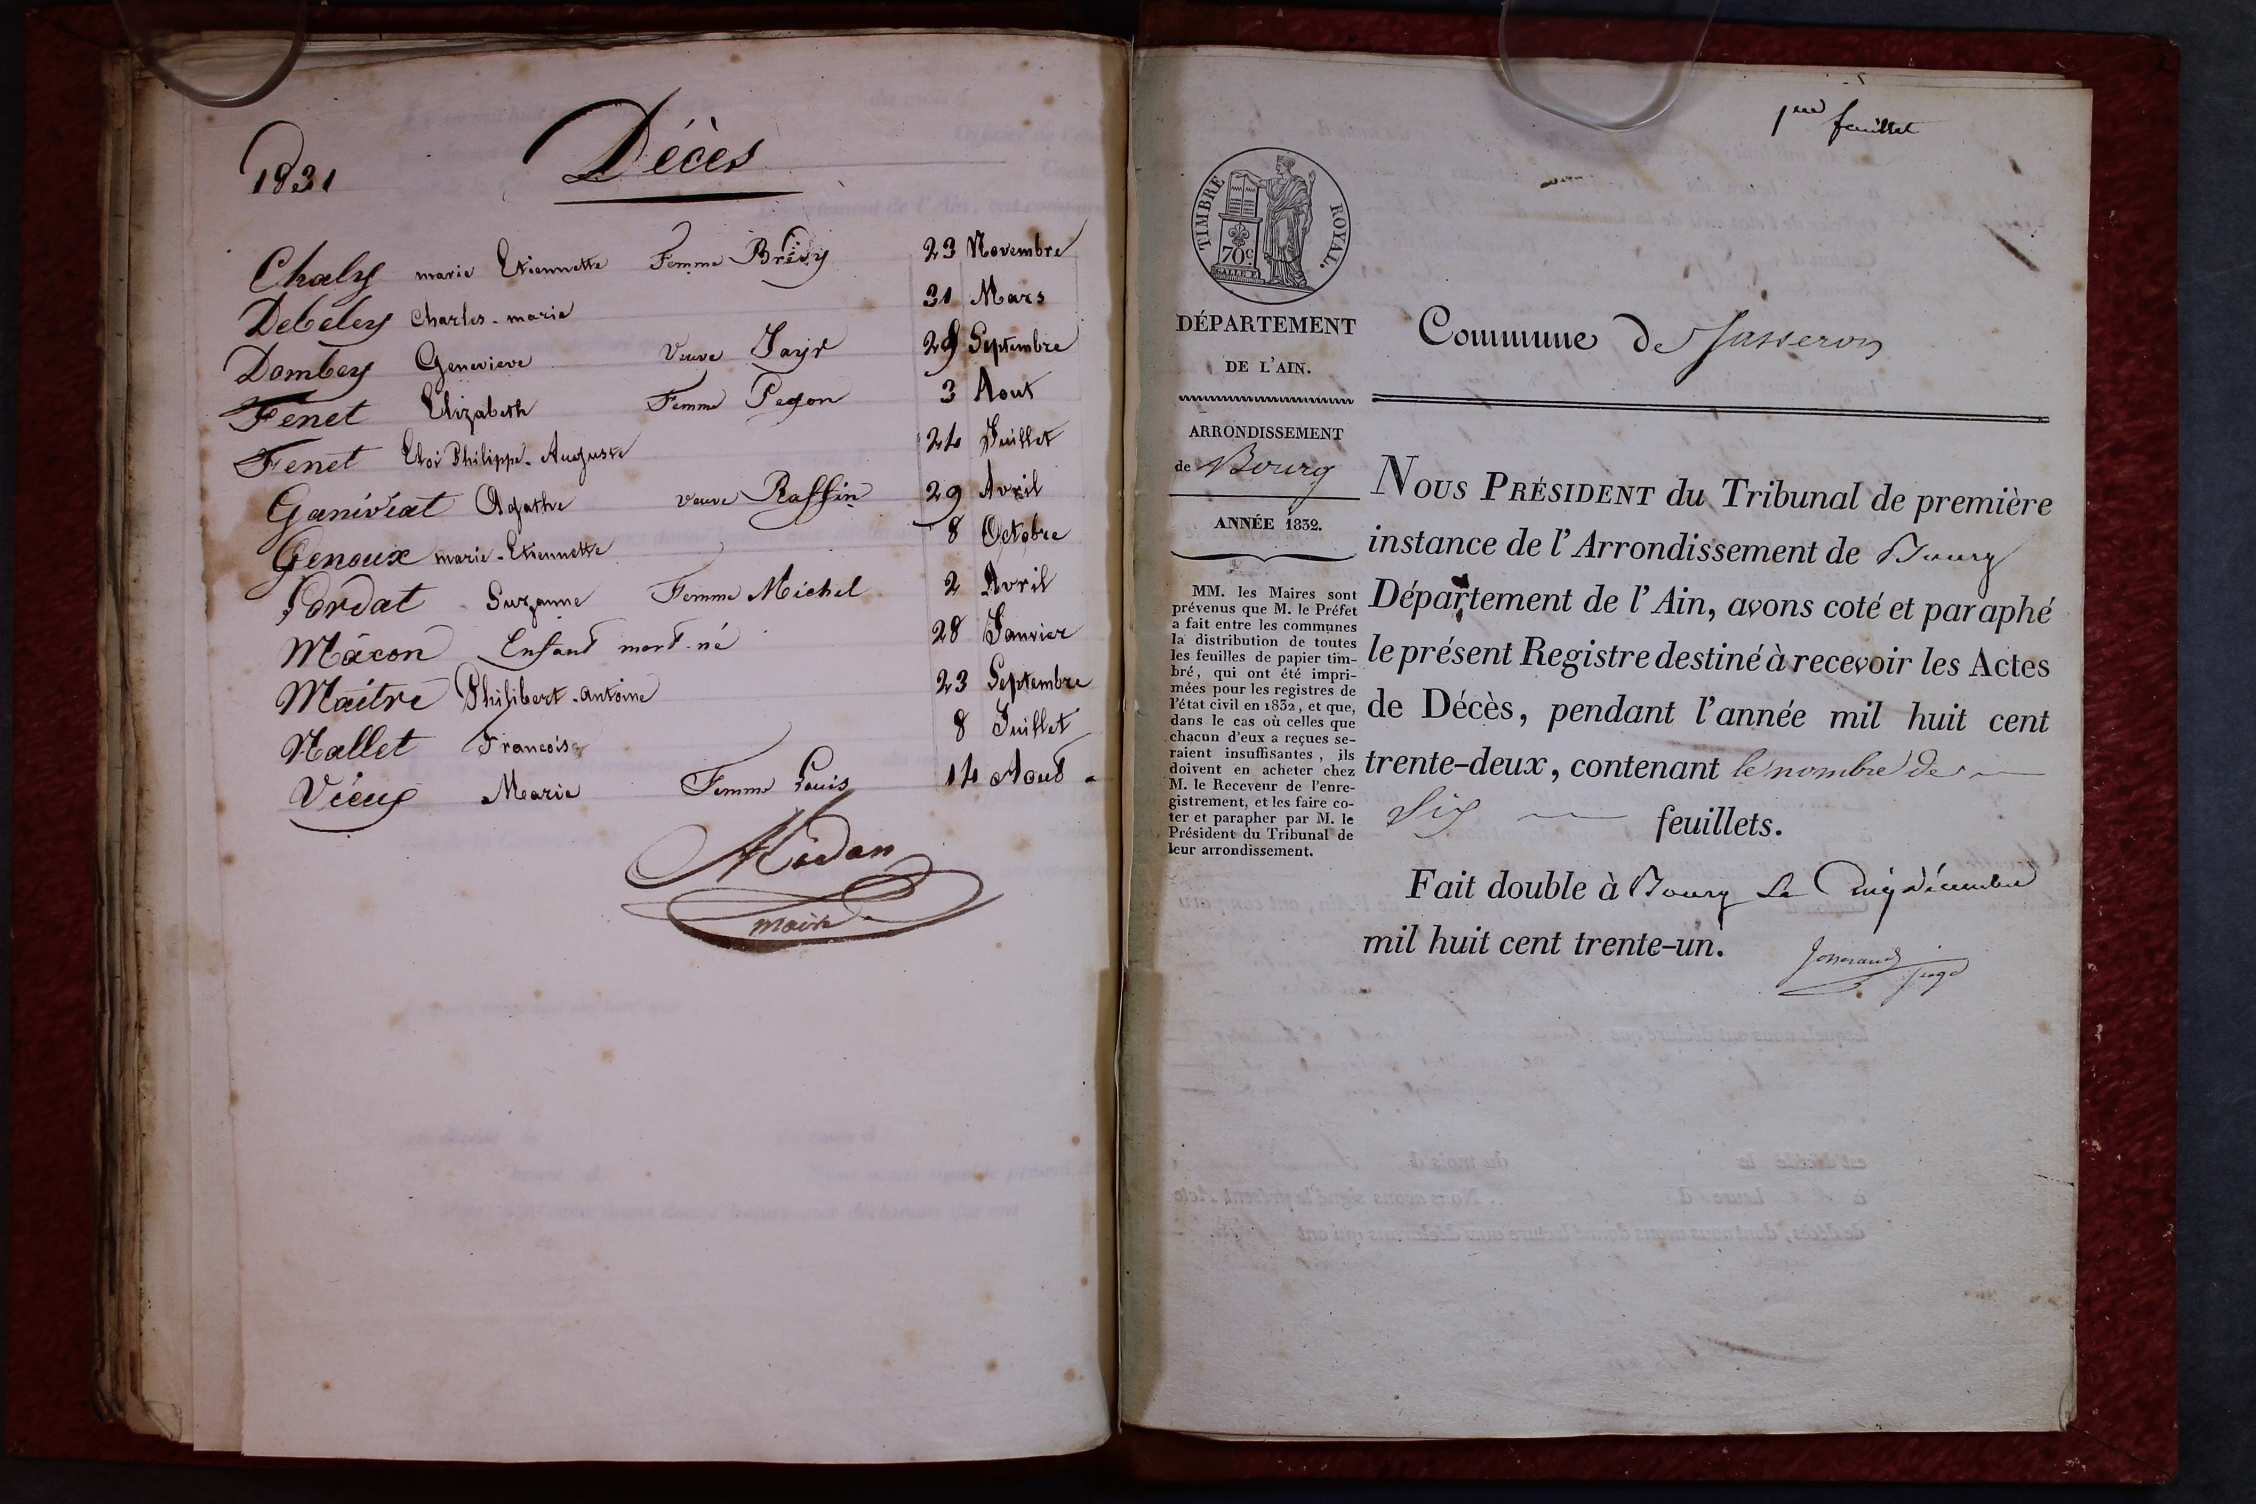 1831
Décès
Chaly marie Etiennette Femme Brévy 23 Novembre
Debeley Charles-marie 31 Mars
Dombey Genevieve Veuve Jayr 29 Septembre
Fenet Elizabeth Femme Pegon 3 Aout
Fenet Eloi Philippe-Auguste 24 Juillet
Ganivéat Agathe veuve Raffin 29 Avril
Genoux marie-Etiennette 8 Octobre
Jordat Suzanne Femme Michel 2 Avril
Mâcon Enfant mort-né 28 Janvier
Maitre Philibert-antoine 23 Septembre
Nallet Francoise 8 Juillet
Vieux Marie Femme Louis 14 Aout
maire
feuillet
TIMBRE ROYAL.
70 c.
DÉPARTEMENT
DE L'AIN.
ARRONDISSEMENT
de Bourg
ANNÉE 1832.
MM. les Maires sont
prévenus que M. le Préfet
a fait entre les communes
la distribution de toutes
les feuilles de papier tim-
bré, qui ont été impri-
mées pour les registres de
l'état civil en 1832, et que,
dans le cas où celles que
chacun d'eux a reçues se-
raient insuffisantes, ils
doivent en acheter chez
M. le Receveur de l'enre-
gistrement, et les faire co-
ter et parapher par M. le
Président du Tribunal de
leur arrondissement.
Commune de Jasseron
NOUS PRÉSIDENT du Tribunal de première
instance de l'Arrondissement de Bourg
Département de l'Ain, avons coté et paraphé
le présent Registre destiné à recevoir les Actes
de Décès, pendant l'année mil huit cent
trente-deux, contenant le nombre de
Six feuillets.
Fait double à Bourg Le décembre
mil huit cent trente-un.
Juge